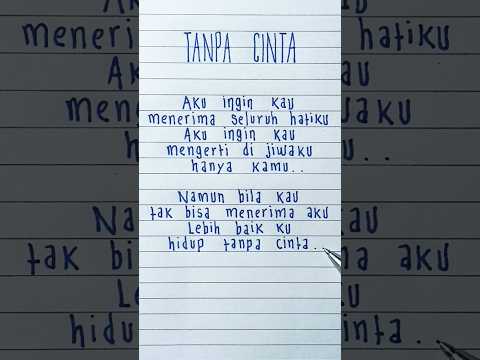 TANPA CINTA
Aku ingin kau
menerima seluruh hatiku
Aku ingin kau
mengerti di jiwaku
hanya kamu..
Namun bila kau
tak bisa menerima aku
Lebih baik ku
hidup tanpa cinta..